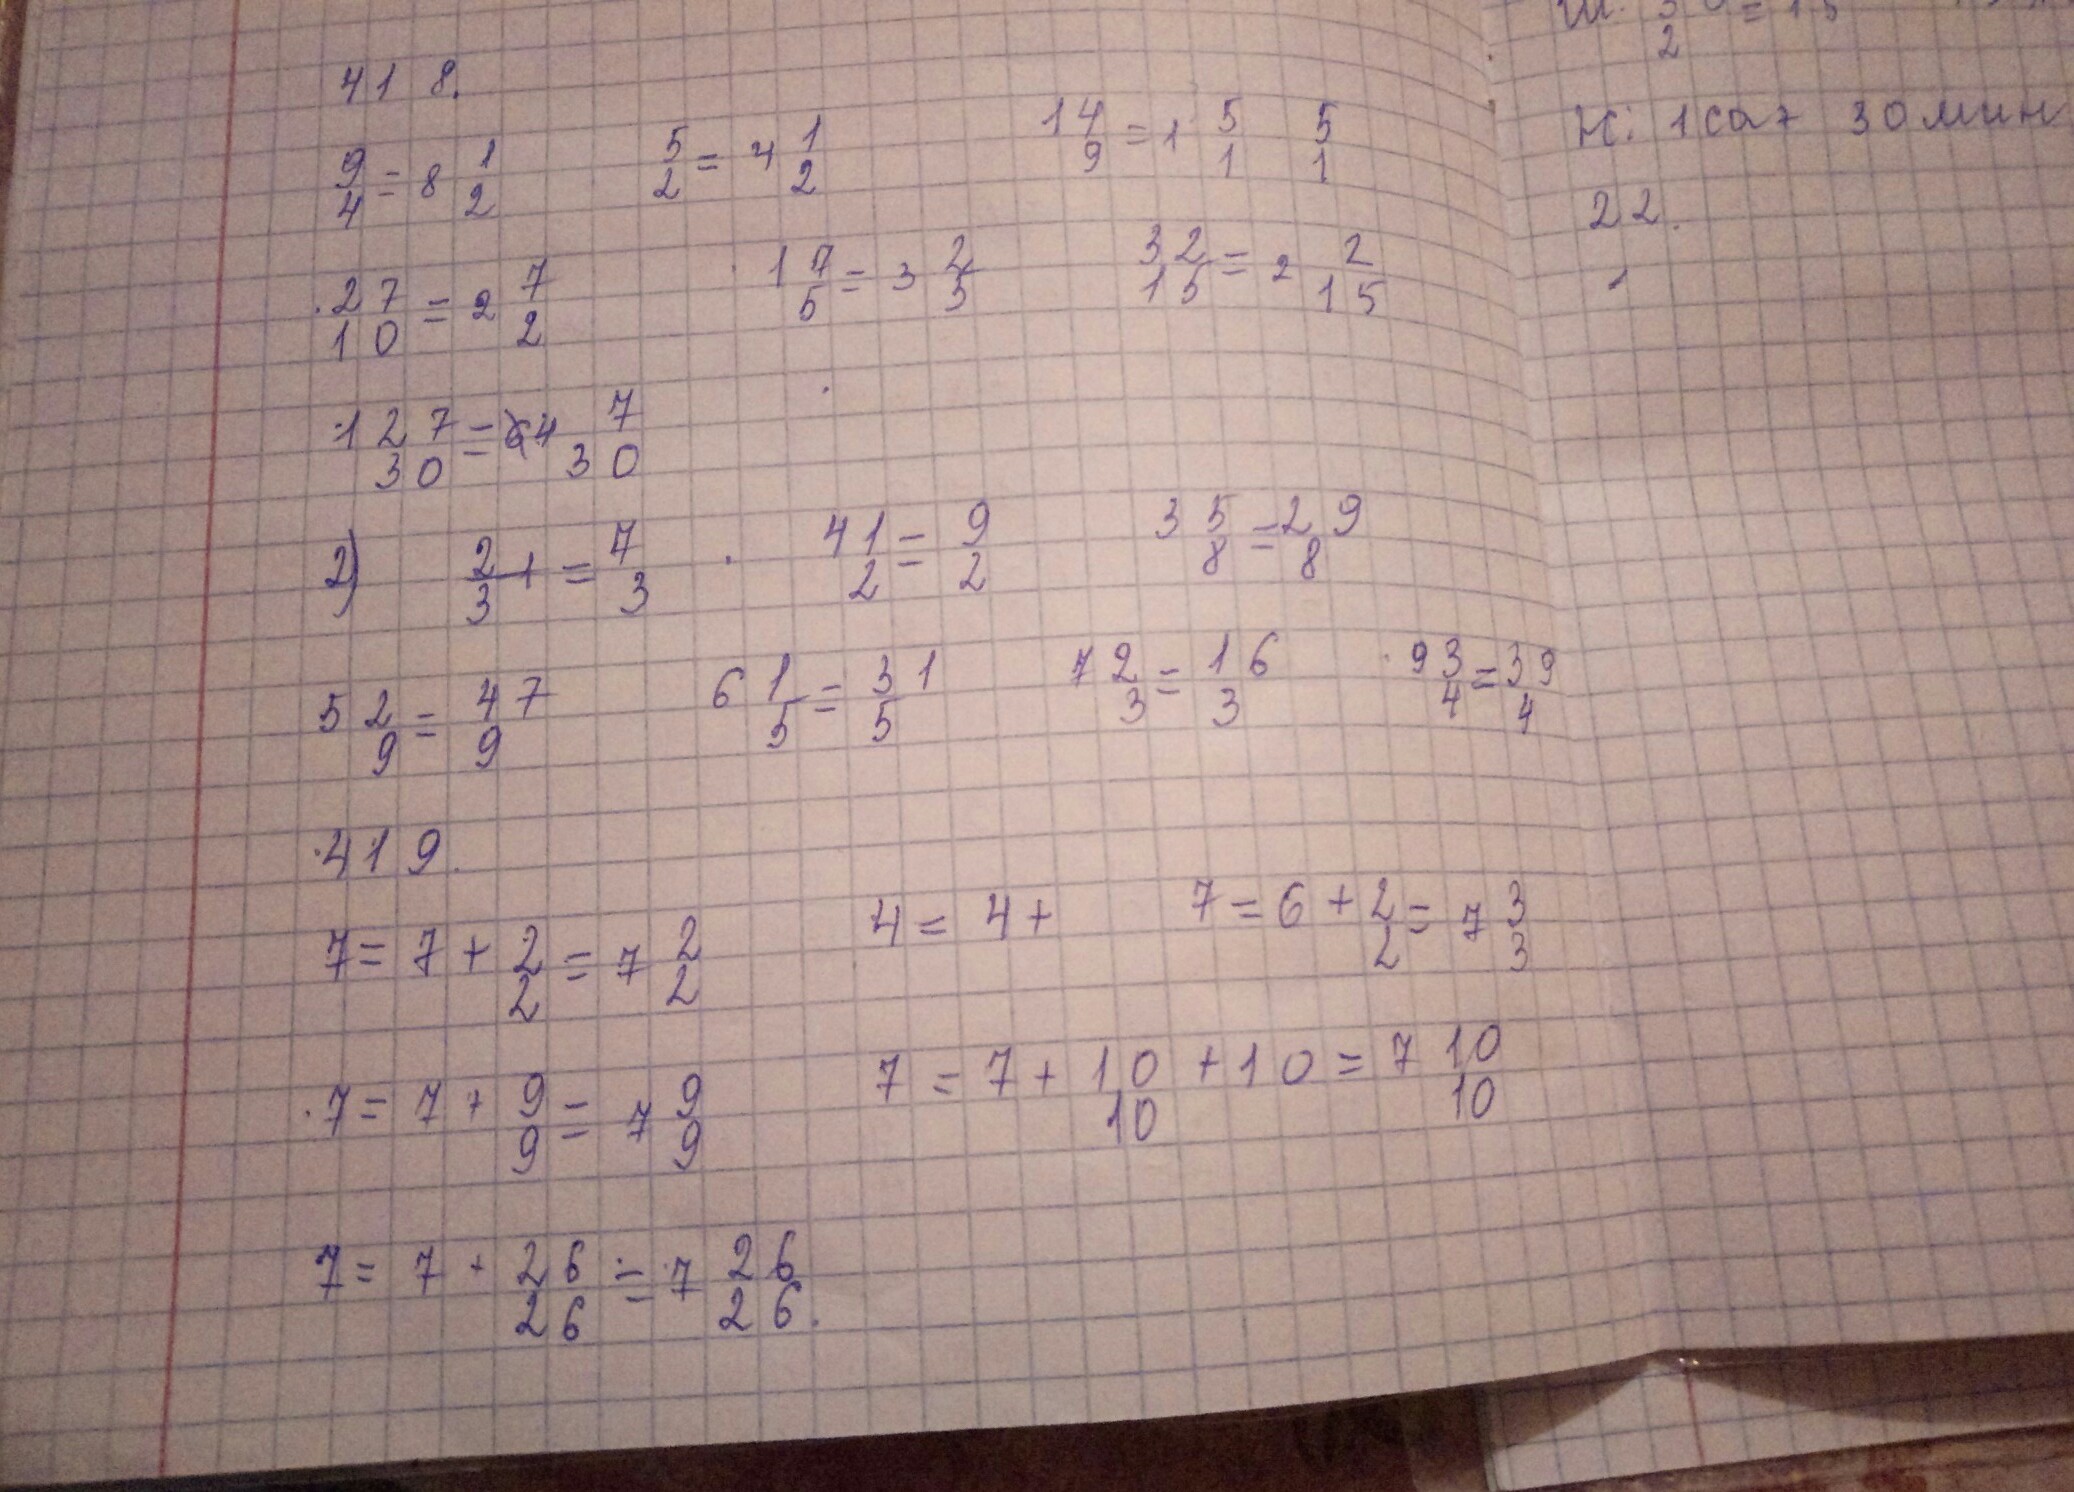 418.
9/4 = 8 1/2 5/2 = 4 1/2 14/9 = 1 5/1 5/1
27/10 = 2 7/2 17/5 = 3 2/5 32/15 = 2 2/15
127/30 = 4 7/30
2) 2/3 1 = 7/3 4 1/2 = 9/2 3 5/8 = 29/8
5 2/9 = 47/9 6 1/5 = 31/5 7 2/3 = 16/3 9 3/4 = 39/4
419.
7 = 7 + 2/2 = 7 2/2 4 = 4 + 7 = 6 + 2/2 = 7 3/3
7 = 7 + 9/9 = 7 9/9 7 = 7 + 10/10 + 10 = 7 10/10
7 = 7 + 26/26 = 7 26/26.
Ж: 1 сағ 30 мин
22.